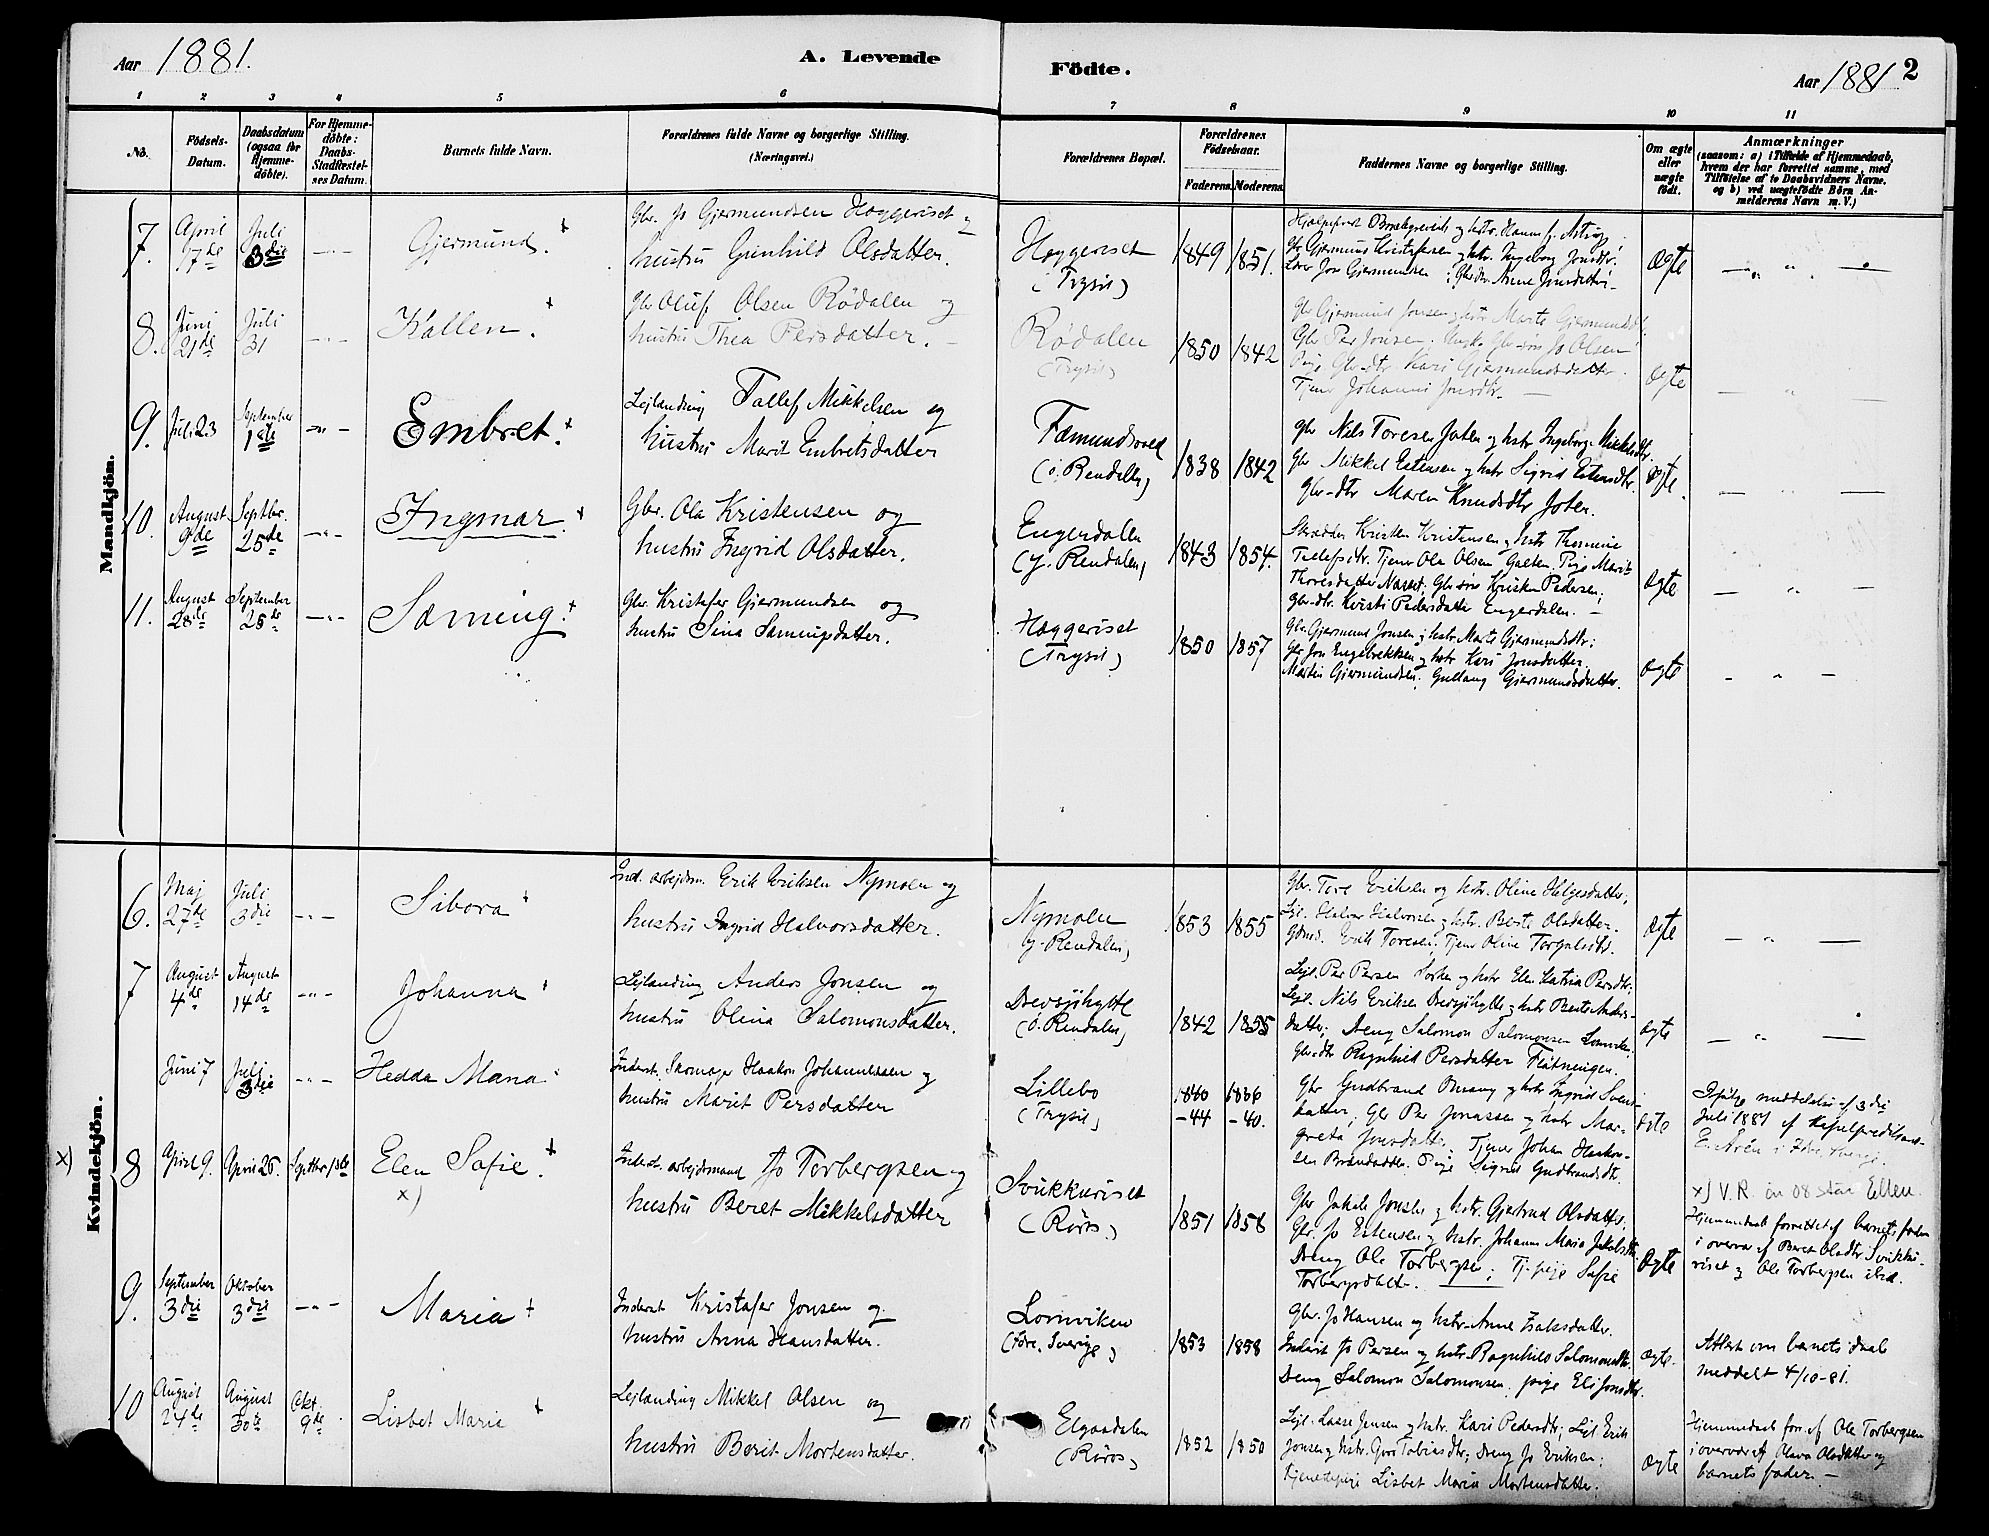 Aar 1881.
A. Levende
Födte.
Aar 1881
2
1 2 3 4 5 6 7 8 9 10 11
No.
Födsels-Datum.
Daabsdatum (ogsaa for Hjemmedöbte).
For Hjemmedöbte: Daabs-Stadfæstelses Datum.
Barnets fulde Navn.
Forældrenes fulde Navne og borgerlige Stilling. (Næringsvei.)
Forældrenes Bopæl.
Forældrenes Födselsaar.
Faderens. Moderens.
Faddernes Navne og borgerlige Stilling.
Om ægte eller uægte födt.
Anmærkninger
(saasom: a) i Tilfælde af Hjemmedaab,
hvem der har forrettet samme, med
Tilföielse af to Daabsvidners Navne,
og b) ved uægtefödte Börn An-
melderens Navn m. V.)
Mandkjön.
7. April 17de Juli 3die Gjermund.
Gbr. Jo Gjermundsen Hæggeriset og
hustru Gunhild Olsdatter.
Hæggeriset
(Trysil)
1849 1851.
Gbr Gjermund Kristofersen og hstr. Ingeborg Jonsdtr;
Lærer Jon Gjermundsen; Gbrdtr. Anne Jonsdatter
ægte
8. Juni 21de Juli 31 Kallen.
Gbr Oluf Olsen Rödalen og
hustru Thea Persdatter.
Rödalen
(Trysil)
1850 1842
Gbr Gjermund Jonsen og hstr Marte Gjermundsdtr.
Gbr Per Jonsen. Ungk. Gbr-sön Jo Olsen
Pige Gbr-dtr Kari Gjermundsdatter.
Tjener Johanne Jonsdtr.
ægte
9. Juli 23 September 1ste Embret.
Lejlænding Tallef Mikkelsen og
hustru Marit Embretsdatter
Fæmundsvold
(ö. Rendalen)
1838 1842
gbr Nils Toresen Joten og hstr Ingeborg Mikkelsdtr.
Gbr Mikkel Estensen og hstr Sigrid Estensdtr.
gbr-dtr Maren Knudsdtr Joten.
ægte.
10. August 9de Septbr. 25de Ingmar.
Gbr. Ola Kristensen og
hustru Ingrid Olsdatter.
Engerdalen
(y. Rendalen)
1843 1854.
Skrædder Kristen Kristensen og hstr Thomine
Tallefsdtr. Tjener Ola Olsen Galten. Pige Marit
Thoresdatter Næset; Gbr sön Kristen Pedersen;
gbr-dtr. Kirsti Pedersdatter Engerdalen.
ægte
11. August 28de September 25de Sæming.
Gbr. Kristofer Gjermundsen og
hustru Sina Sæmingsdatter.
Hæggeriset
(Trysil)
1850 1857
Gbr. Gjermund Jonsen og hstr. Marte Gjermundsdtr;
Gbr Jon Engebrektsen og hstr Kari Jonsdatter.
Martin Gjermundsen; Gullaug Gjermundsdatter.
ægte
Kvindekjön.
6. Maj 27de Juli 3die Sibora
Ind. arbejdsm. Erik Eriksen Nymoen og
hustru Ingrid Halvorsdatter.
Nymoen
(y. Rendalen)
1853 1855
Gbr. Tore Eriksen og hstr. Oline Helgesdatter;
Lejl. Halvor Halvorsen og hstr. Berte Olsdatter.
Gdmd. Erik Toresen; Tjener Oline Torgalsdtr.
ægte
7 August 4de August 14de Johanna
Lejlænding Anders Jonsen og
hustru Olina Salomonsdatter.
Drevsjöhytte
(ö. Rendalen)
1842 1855
Lejl. Per Persen Sorken og hstr Elen Katrina Persdtr;
Lejl. Nils Eriksen Drevsjöhytte og hstr Berte Anders-
datter; Dreng Salomon Salomonsen Lomviken
Gbr-dtr Ragnhild Persdatter Flötningen.
ægte
Juni 7 Juli 3die Hedda Maria
Inderst, Skomager Haakon Johannessen og
hustru Marit Persdatter
Lillebo
(Trysil)
1860 1866
-44 -40.
Gbr Gudbrand Omang og hstr Ingrid Svens-
datter; Gbr Per Jonassen og hstr Mar-
greta Jonsdatt. Tjener Johan Haakon-
sen Brændodden. Pige Sigrid Gudbrandsdtr.
ægte
meddelse af 3die
Juli 1881 af Kapelpredikant
x)
8 April 9. April 26. Septbr 1ste Elen Sofie.
x)
Inderst. arbejdsmand Jo Torbergsen og
hustru Beret Mikkelsdatter
Svukkuriset
(Röros)
1851 1858
Gbr Jakob Jonsen og hstr. Gjertrud Olsdatter;
Gbr. Jo Estensen og hstr. Johanne Maria Jakobsdtr
Dreng Ole Torbergsen; Tj. pige Sofie
Torbergsdatter.
ægte
x) V.R. Ellen.
Hjemmedaab forrettet af barnets fader
i overvær af Beret Olsdtr Svukku-
riset og Ole Torbergsen ibid.
9. September 3die Oktober 3die Maria
Inderst Kristofer Jonsen og
hustru Anna Hansdatter.
Lomviken
(Idre, Sverige)
1853 1858
Gbr. Jo Hansen og hstr. Anne Isaksdatter.
Inderst Jo Persen og hstr. Ragnhild Salomonsdtr.
Dreng Salomon Salomonsen, pige Eli Jonsdtr.
ægte.
Attest om barnets daab
meddelt 4/10-81.
10 August 24de August 30te Okt. 9de Lisbet Marie
Lejlænding Mikkel Olsen og
hustru Berit Mortensdatter.
Elgaadalen
(Röros)
1852 1850
Lejl. Lasse Jensen og hstr. Kari Pedersdtr; Lejl Erik
Jonsen og hstr. Guri Tobiasdtr; Dreng Jo Eriksen;
tjenestepige Lisbet Maria Mortensdatter.
ægte
Hjemmedaab forr. af Ole Torbergsen
i overvær af Olava Olsdatter og
barnets fader.